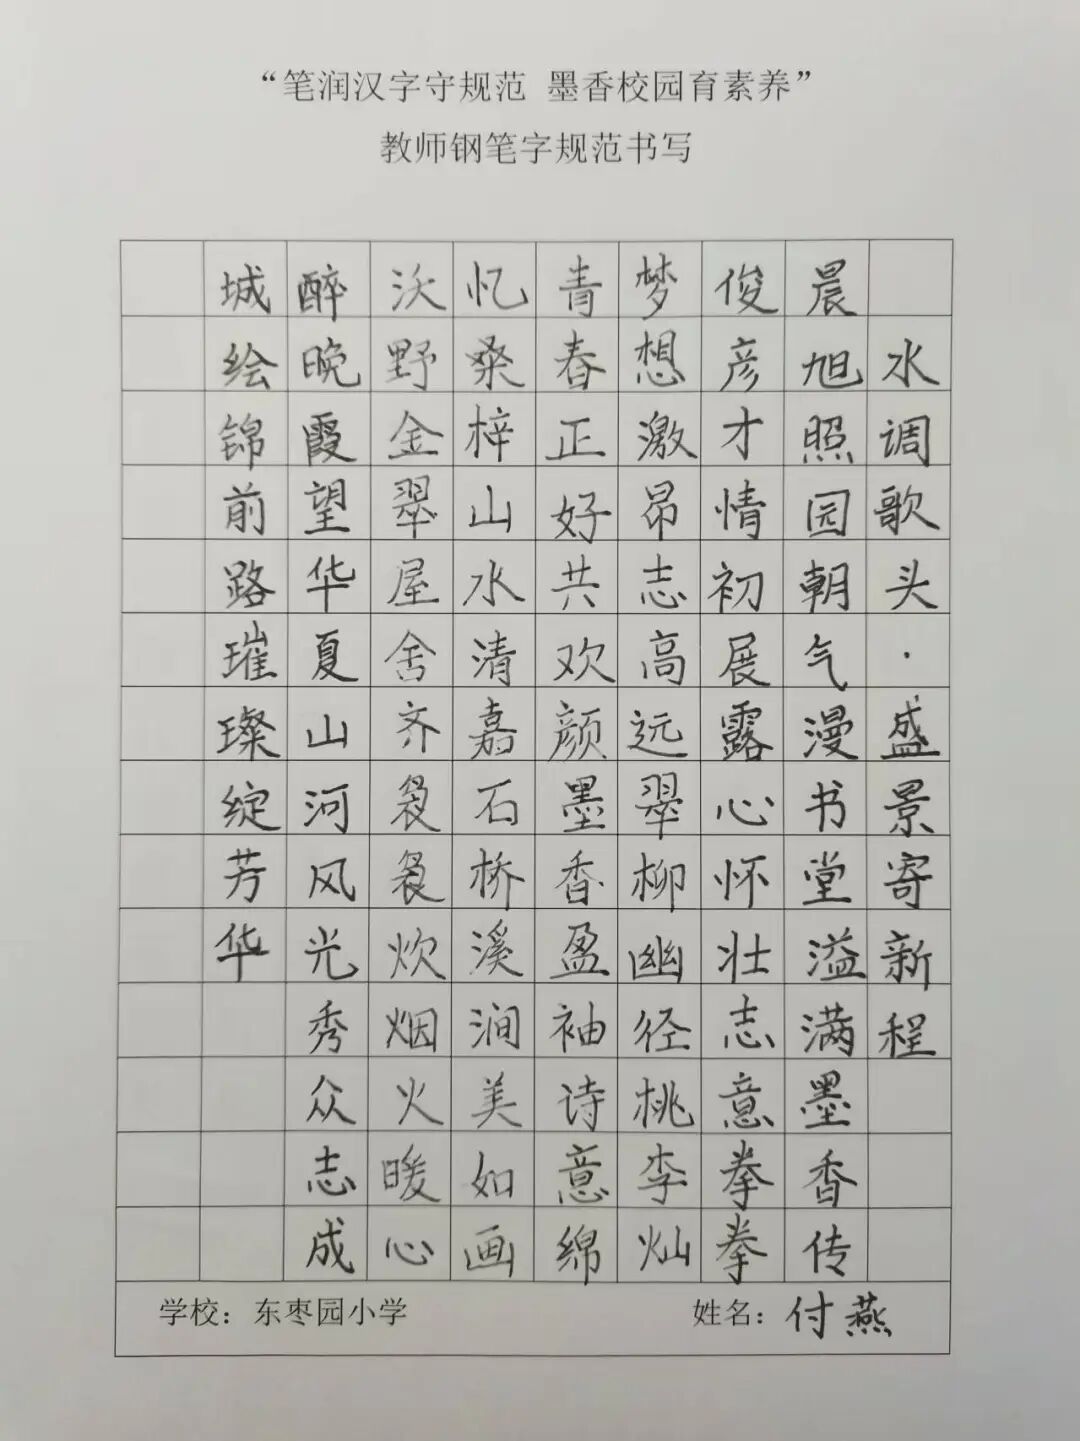 “笔润汉字守规范 墨香校园育素养”
教师钢笔字规范书写
水调歌头·盛景寄新程
晨旭照园朝气漫书堂溢满墨香传
俊彦才情初展露心怀壮志意拳拳
梦想激昂志高远翠柳幽径桃李灿
青春正好共欢颜墨香盈袖诗意绵
忆桑梓山水清嘉石桥溪涧美如画
沃野金翠屋舍齐袅袅炊烟火暖心
醉晚霞望华夏山河风光秀众志成
城绘锦前路璀璨绽芳华
学校：东枣园小学 姓名：付燕